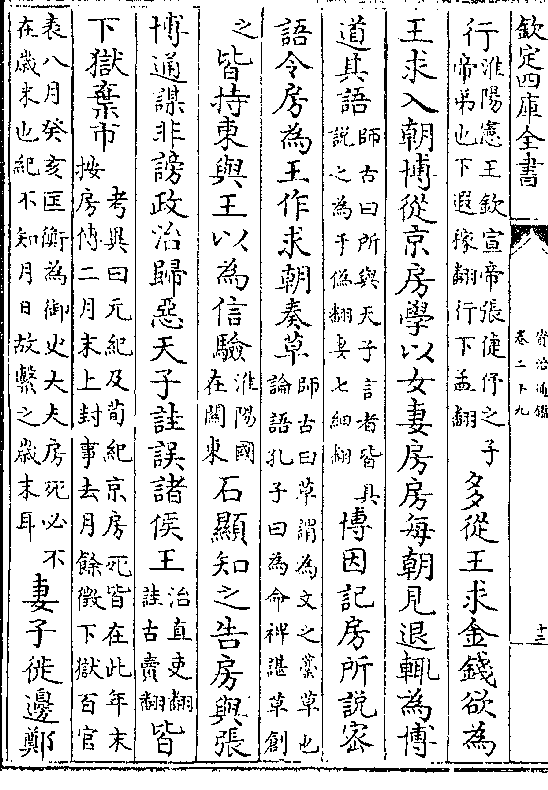 欽定四庫全書
資治通鑑
卷二十九
十三
行淮陽憲王欽宣帝張倢伃之子
帝弟也下遐稼翻行下孟翻
多從王求金錢欲為
王求入朝博從京房學以女妻房房每朝見退輒為博
道其語師古曰所與天子言者皆具
說之為于偽翻妻七細翻
博因記房所説密
語令房為王作求朝奏草師古曰草謂為文之藁草也
論語孔子曰為命裨諶草創
之皆持東與王以為信驗淮陽國
在關東
石顯知之告房與張
博通謀非謗政治歸惡天子詿誤諸侯王治直吏翻
詿古賣翻
皆
下獄棄市考異曰元紀及荀紀京房死皆在此年末
按房傳二月末上封事去月餘徵下獄百官
表八月癸亥匡衡為御史大夫房死必不
在歲末也紀不知月日故繫之歲末耳
妻子徙邊鄭